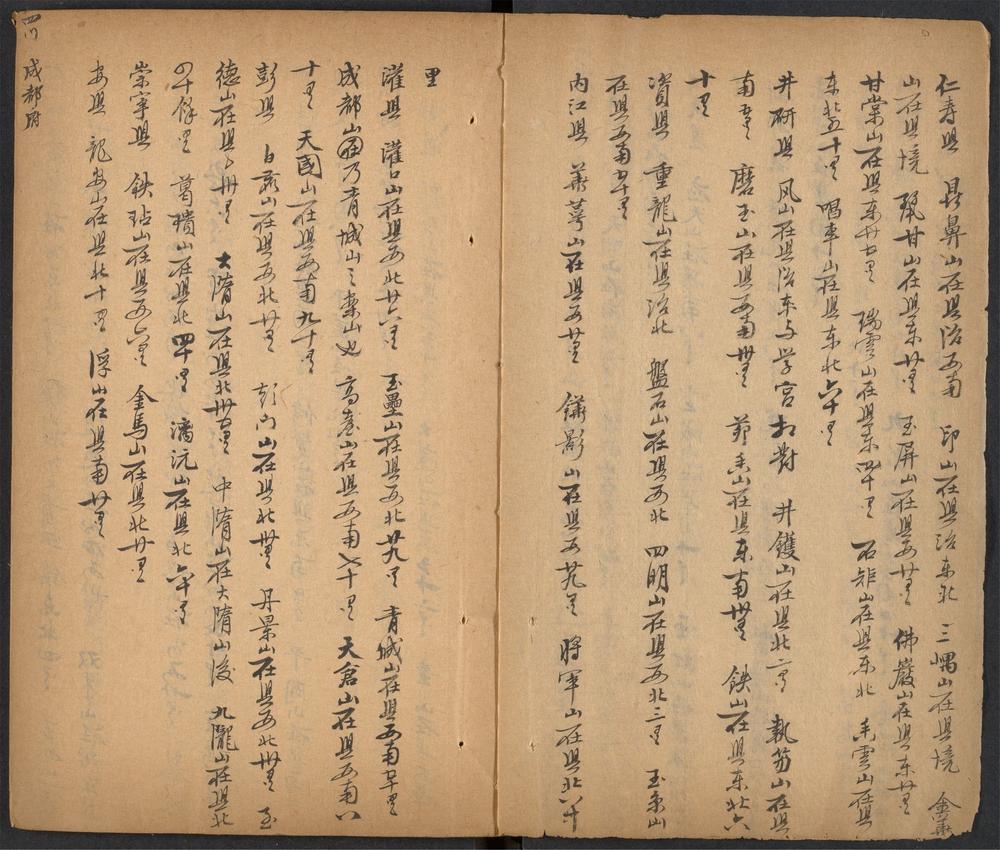 仁寿县 鼻山在县治西南 印山在县治东北 三嵎山在县境 金華
山在县境 甘山在县东廿里 玉屏山在县西廿里 佛巖山在县东廿里
甘棠山在县东廿七里 瑞雲山在县东四十里 石山在县东北 雲山在县
东北五十里 唱車山在县东北六十里
井研县 风山在县治东与学宫相對 井鑊山在县北二里 執笏山在县
南里 磨玉山在县西南卅里 山在县东南卅里 铁山在县东北六
十里
资县 重龍山在县治北 盤石山在县西北 四明山在县西北三里 玉京山
在县西南里
内江县 華萼山在县西廿里 山在县西里 將軍山在县北六十
里
灌县 灌口山在县西北廿六里 玉壘山在县西北廿九里 青城山在县西南里
成都山乃青城山之山也 高臺山在县西南七十里 天倉山在县西南八
十里 天國山在县西南九十里
彭县 白山在县西北廿里 彭门山在县北卅里 丹景山在县西北卅里 至
德山在县北卅里 大隋山在县北卅里 中隋山在大隋山後 九隴山在县北
四十餘里 葛璝山在县北四十里 漓沅山在县北六十里
崇宁县 铁砧山在县西六里 金馬山在县北廿里
安县 龍安山在县北十里 浮山在县南廿里
四川 成都府